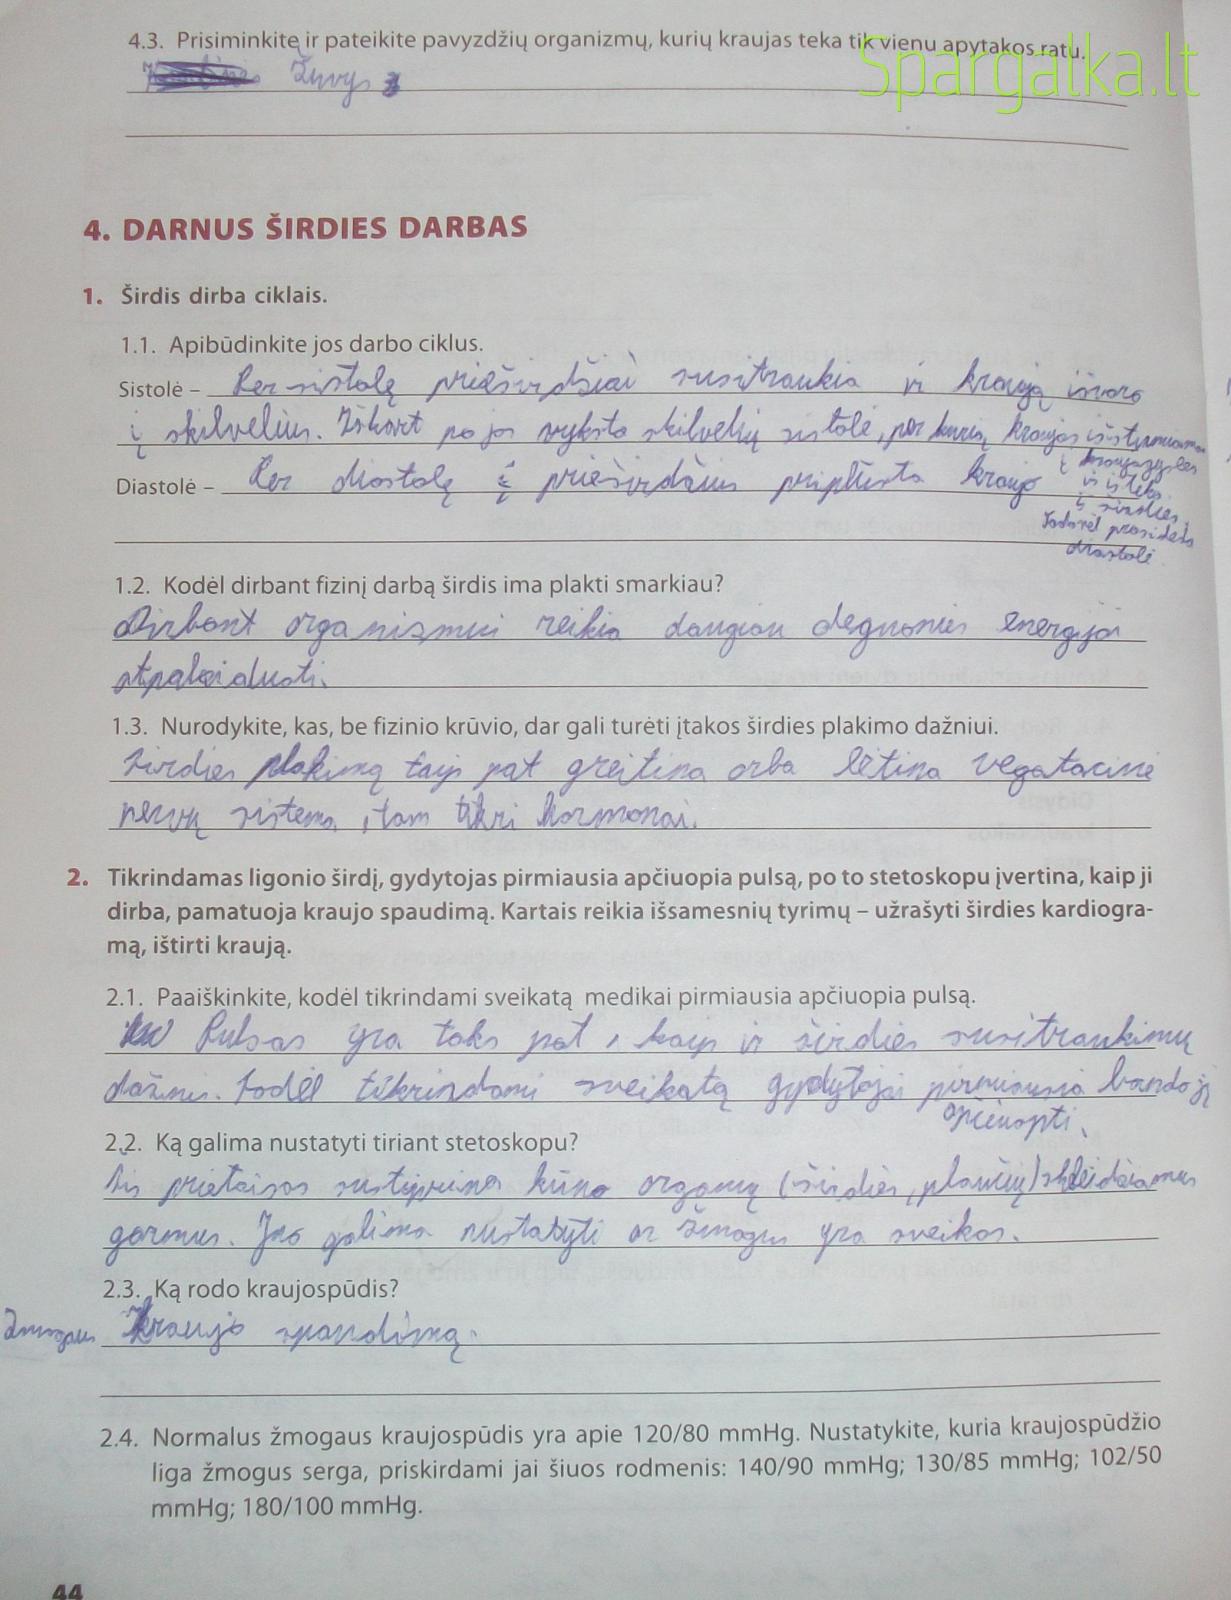 4.3. Prisiminkite ir pateikite pavyzdžių organizmų, kurių kraujas teka tik vienu apytakos ratu.
Spargalka.lt
Žuvys
4. DARNUS ŠIRDIES DARBAS
1. Širdis dirba ciklais.
1.1. Apibūdinkite jos darbo ciklus.
Sistolė – Per sistolę prieširdžiai susitraukia ir kraują išvaro
į skilvelius. Iškart po jos vyksta skilvelių sistolė, per kurią kraujas išstumiamas
į kraujagysles
ir išteka
iš širdies.
Todorėl prasideda
diastolė.
Diastolė – Per diastolę į prieširdžius priplūsta kraujo
1.2. Kodėl dirbant fizinį darbą širdis ima plakti smarkiau?
Dirbant organizmui reikia daugiau deguonies energijai
atpalaiduoti.
1.3. Nurodykite, kas, be fizinio krūvio, dar gali turėti įtakos širdies plakimo dažniui.
Širdies plakimą taip pat greitina arba lėtina vegatacinė
nervų sistema, tam tikri hormonai.
2. Tikrindamas ligonio širdį, gydytojas pirmiausia apčiuopia pulsą, po to stetoskopu įvertina, kaip ji
dirba, pamatuoja kraujo spaudimą. Kartais reikia išsamesnių tyrimų – užrašyti širdies kardiogra-
mą, ištirti kraują.
2.1. Paaiškinkite, kodėl tikrindami sveikatą medikai pirmiausia apčiuopia pulsą.
Pulsas yra toks pat, kaip ir širdies susitraukimų
dažnis. Todėl tikrindami sveikatą gydytojai pirmiausia bando jį
apčiuopti.
2.2. Ką galima nustatyti tiriant stetoskopu?
Šis prietaisas sustiprina kūno organų (širdies, plaučių) skleidžiamus
garsus. Juo galima nustatyti ar žmogus yra sveikas.
2.3. Ką rodo kraujospūdis?
Žmogaus kraujo spaudimą.
2.4. Normalus žmogaus kraujospūdis yra apie 120/80 mmHg. Nustatykite, kuria kraujospūdžio
liga žmogus serga, priskirdami jai šiuos rodmenis: 140/90 mmHg; 130/85 mmHg; 102/50
mmHg; 180/100 mmHg.
44